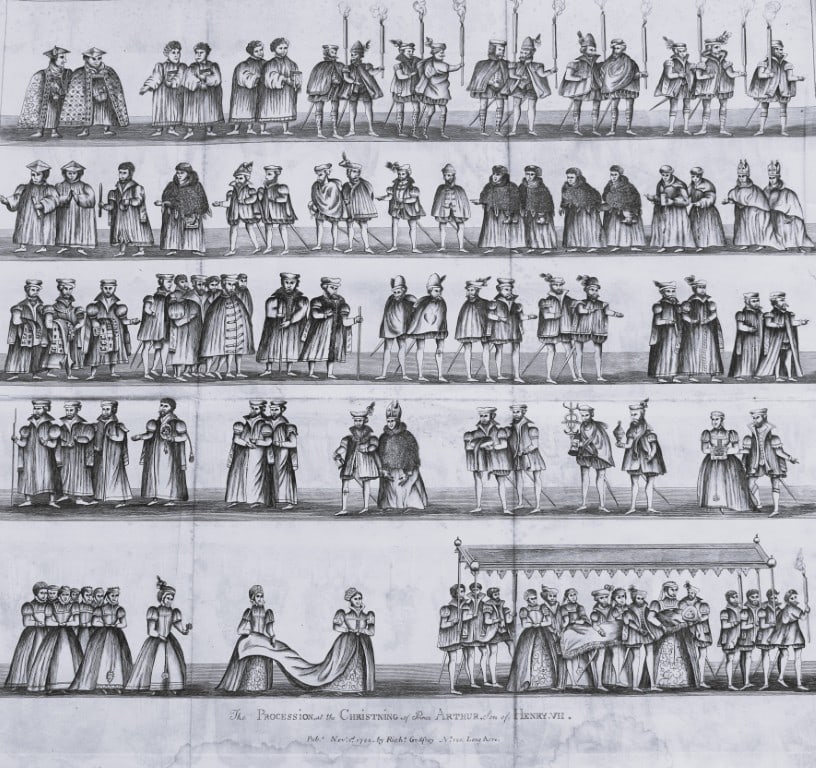 The PROCESSION at the CHRISTNING of Prince ARTHUR, Son of HENRY VII.
Pub.d by Rich.d Godfrey N.o 120, Long Acre.